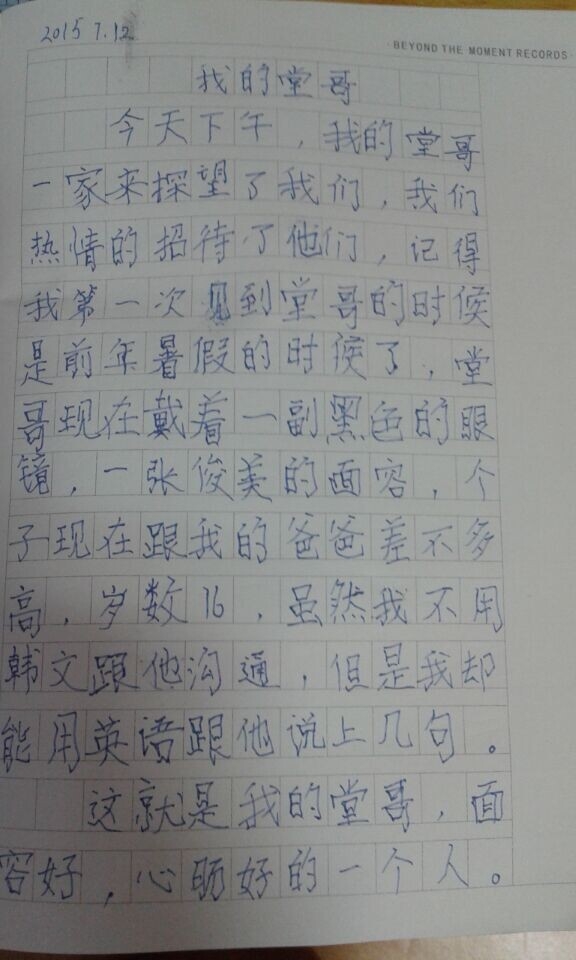 2015 7.12
BEYOND THE MOMENT RECORDS
我的堂哥
今天下午，我的堂哥
一家来探望了我们，我们
热情的招待了他们，记得
我第一次见到堂哥的时候
是前年暑假的时候了，堂
哥现在戴着一副黑色的眼
镜，一张俊美的面容，个
子现在跟我的爸爸差不多
高，岁数16，虽然我不用
韩文跟他沟通，但是我却
能用英语跟他说上几句。
这就是我的堂哥，面
容好，心好的一个人。